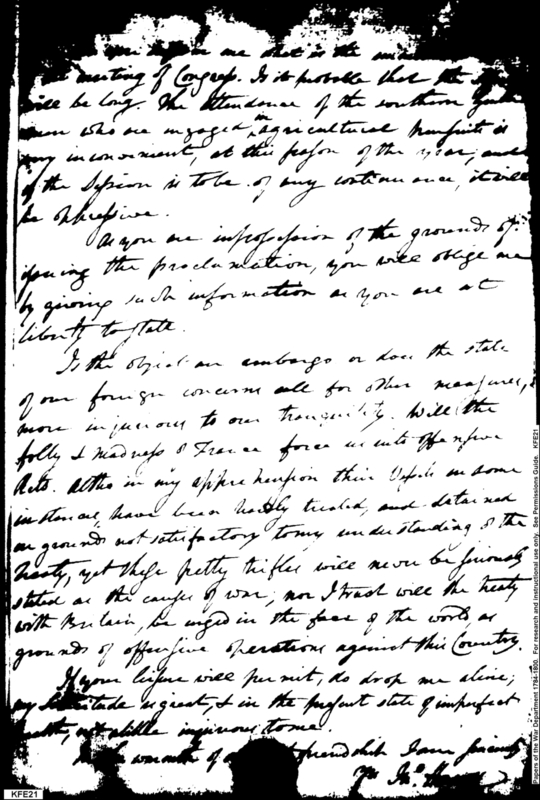 you inform me what is the
meeting of Congress. Is it probable that the
will be long. The attendance of the southern Gentle
men who are engaged in agricultural pursuits is
very inconvenient, at this season of the year, and
if the Session is to be of any continuance, it will
be oppressive.
As you are in possession of the grounds of
issuing the proclamation, you will oblige me
by giving such information as you are at
liberty to state.
Is the object an embargo or does the state
of our foreign concerns call for other measures,
more injurious to our tranquility. Will the
folly & madness of France force us into offensive
Acts. Altho in my apprehension their Vessels in some
instances, have been hardly treated, and detained
on grounds not satisfactory to my understanding of the
treaty, yet these petty trifles will never be seriously
stated as the causes of war; nor I trust will the treaty
with Britain, be urged in the face of the world, as
grounds of offensive operations against this Country.
If your leisure will permit, do drop me a line,
my is great, & in the present state of imperfect
health, not a little injurious to me.
In the warmth of friendship I am sincerely
Yrs Jno.
KFE21
Papers of the War Department 1784-1800. For research and instructional use only. See Permissions Guide. KFE21